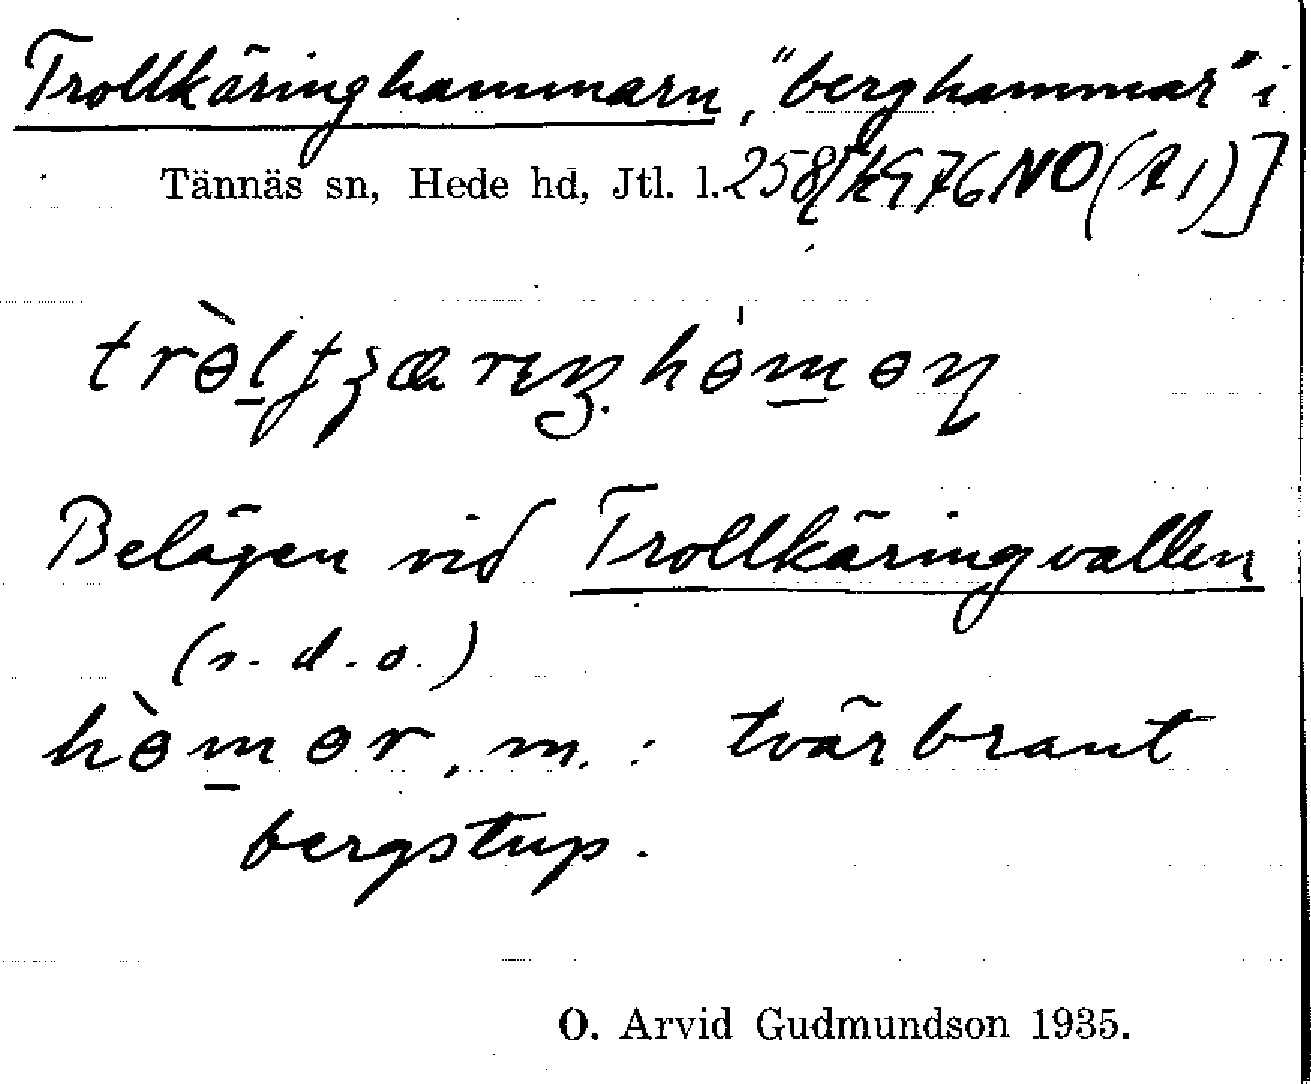 Trollkäringhammarn, "berghammar" i
Tännäs sn, Hede hd, Jtl. l. NO (A1)]
Belägen vid Trollkäringvallen
(s.d.o.)
hòmor, m.: tvärbrant
bergstup.
O. Arvid Gudmundson 1935.